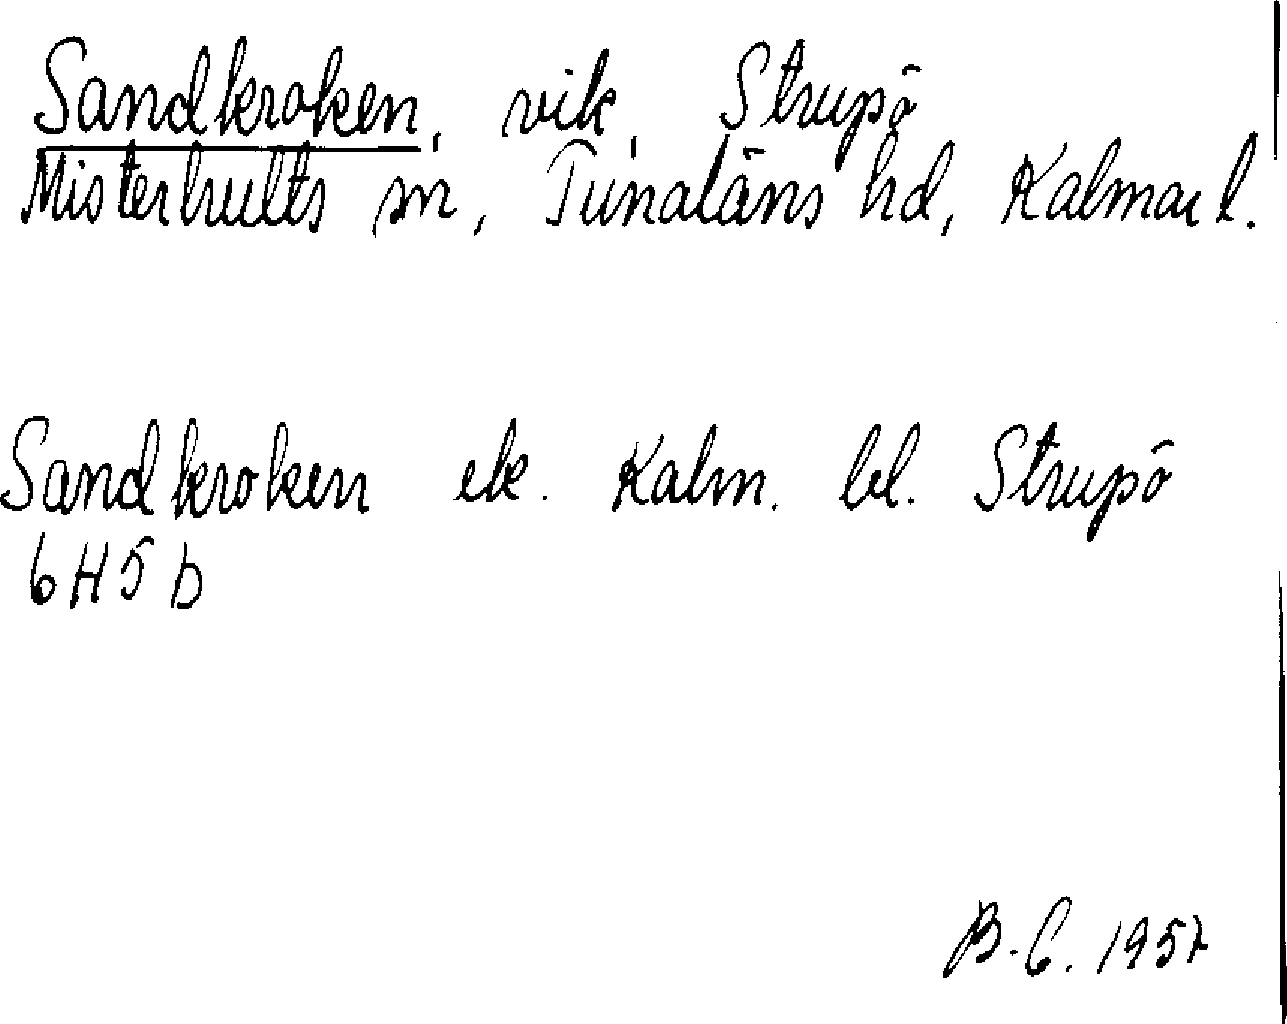 Sandkroken, vik, Strupö
Misterhults sn, Tunaläns hd, Kalmar l.
Sandkroken ek. Kalm. bl. Strupö
6H5b
B.C. 1957